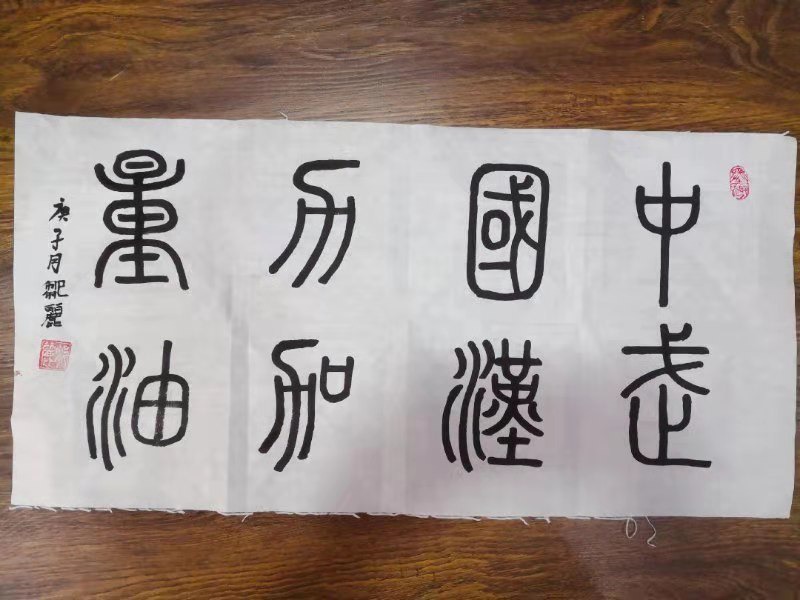 中國力量
武漢加油
庚子月
麗